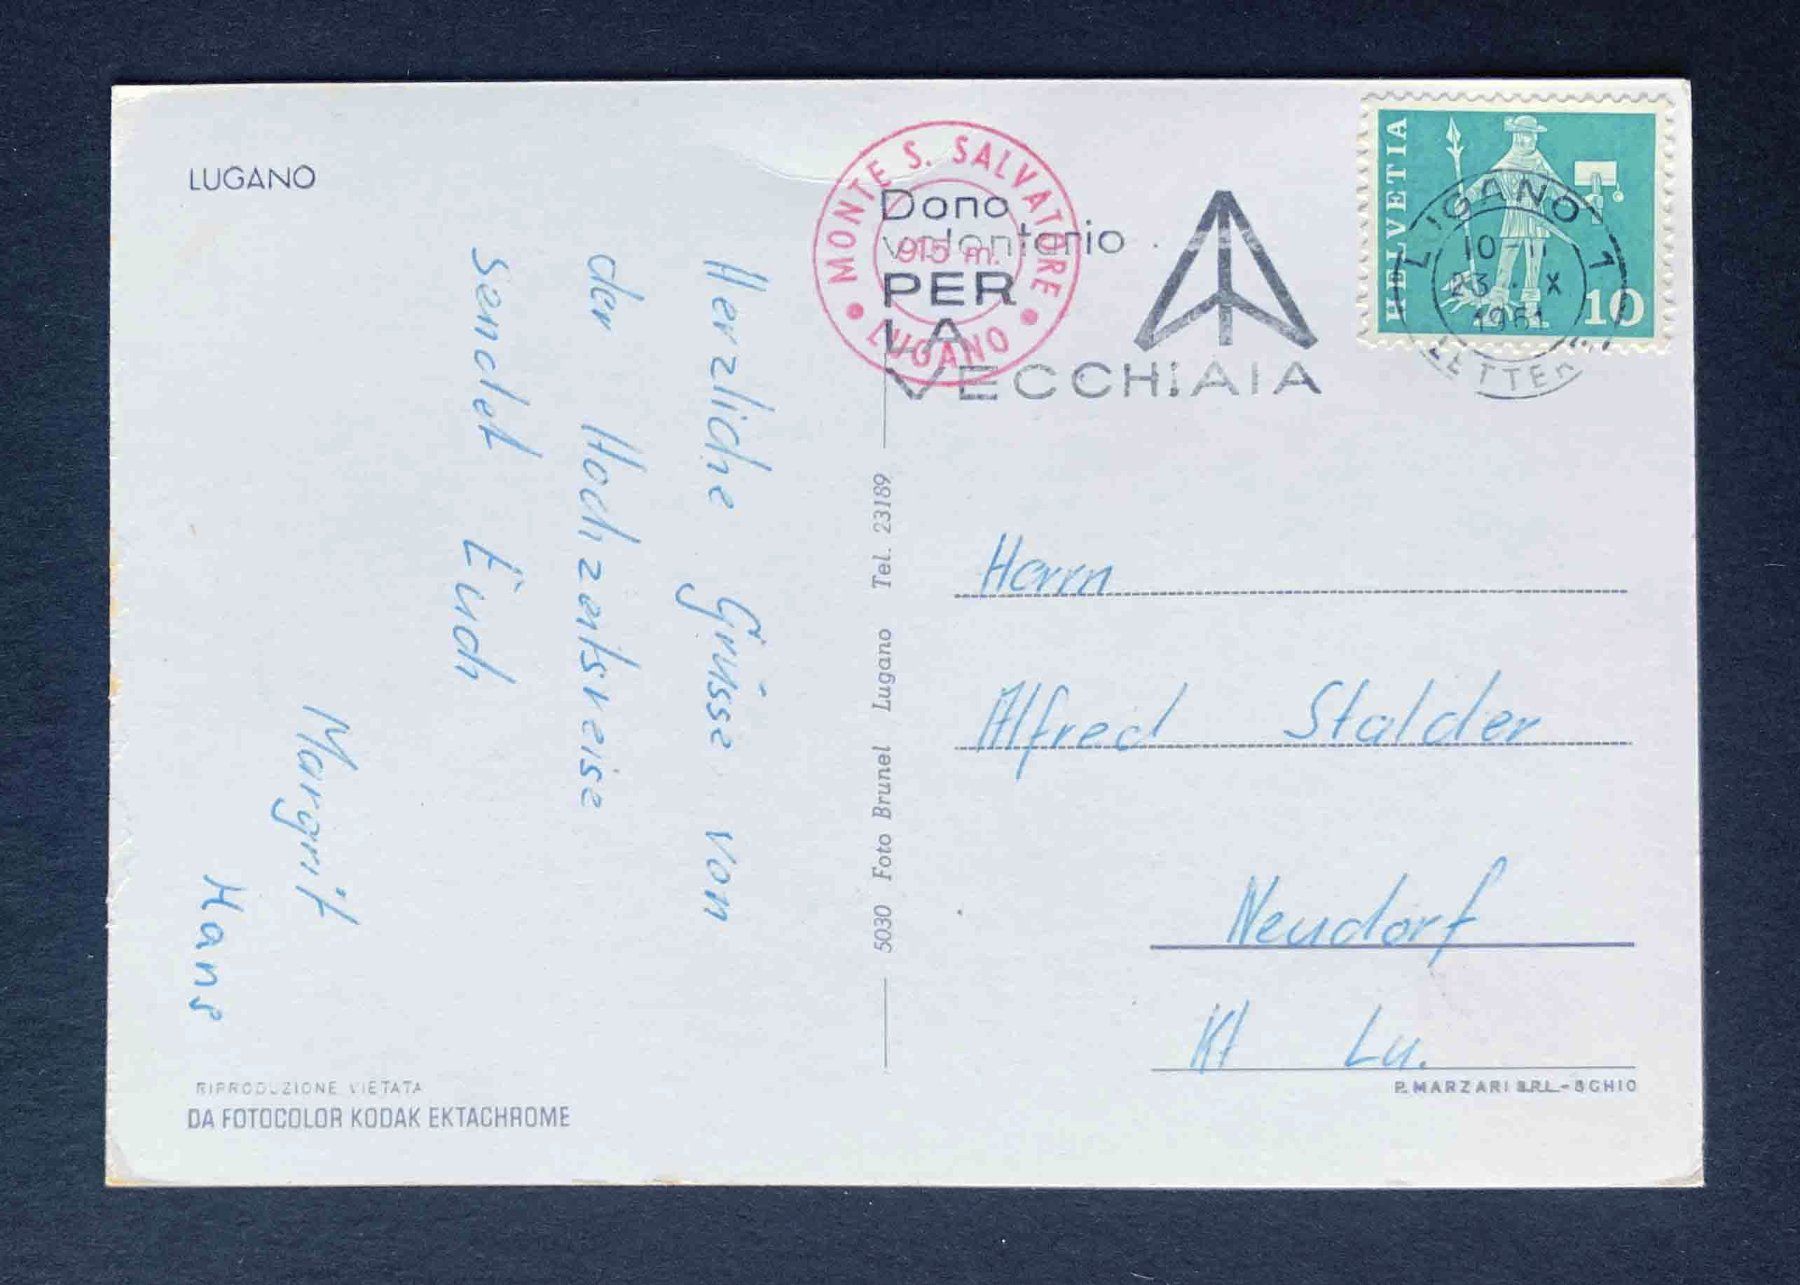 LUGANO
MONTE S. SALVATORE
915 m.
LUGANO
Dono
volontario
PER
LA
VECCHIAIA
HELVETIA
10
LUGANO 1
10-11
23. X
1961
Herzliche Grüsse von
der Hochzeitsreise
sendet Euch
Margrit
Hans
5030 Foto Brunel Lugano Tel. 23189
Herrn
Alfred Stalder
Neudorf
Kt Lu.
RIPRODUZIONE VIETATA
DA FOTOCOLOR KODAK EKTACHROME
P. MARZARI S.R.L. - SCHIO